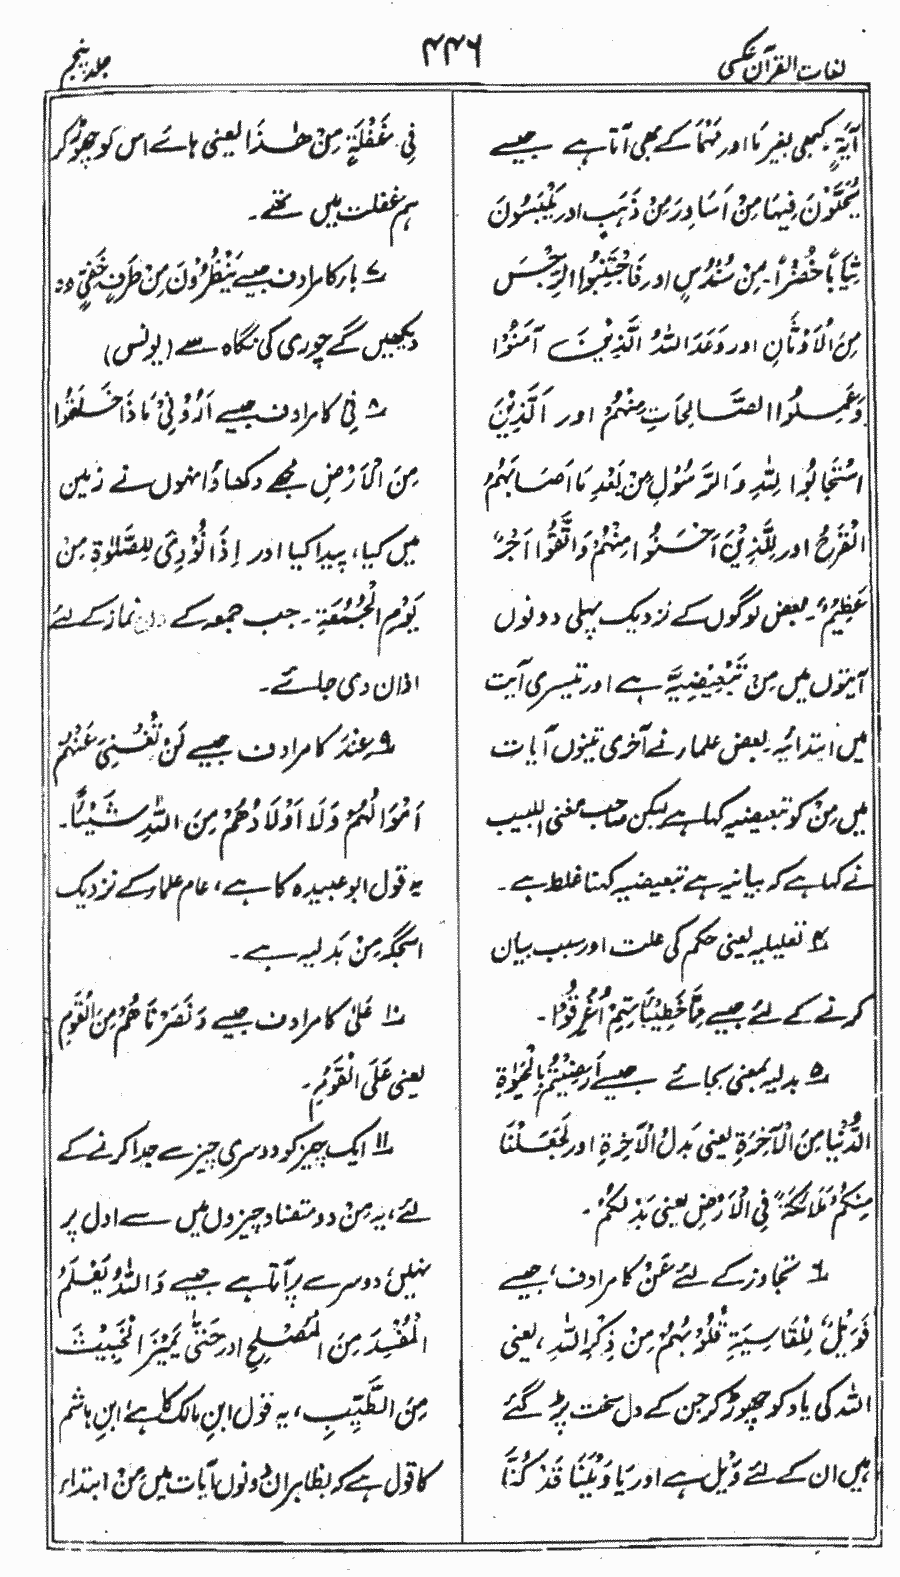 لغات القرآن عکسی
۴۴۶
جلد پنجم
آیَۃٍ۔ کبھی بغیر مَا اور مَہْمَا کے بھی آتا ہے جیسے
یُحَلَّوْنَ فِیْہَا مِنْ اَسَاوِرَ مِنْ ذَہَبٍ اور یَلْبَسُوْنَ
ثِیَابًا خُضْرًا مِنْ سُنْدُسٍ اور فَاجْتَنِبُوا الرِّجْسَ
مِنَ الْاَوْثَانِ اور وَعَدَ اللّٰہُ الَّذِیْنَ آمَنُوْا
وَعَمِلُوا الصَّالِحَاتِ مِنْہُمْ اور اَلَّذِیْنَ
اسْتَجَابُوْا لِلّٰہِ وَالرَّسُوْلِ مِنْ بَعْدِ مَا اَصَابَہُمُ
الْقَرْحُ اور لِلَّذِیْنَ اَحْسَنُوا مِنْہُمْ وَاتَّقَوْا اَجْرٌ
عَظِیْمٌ۔ بعض لوگوں کے نزدیک پہلی دونوں
آیتوں میں مِنْ تَبْعِیْضِیَّہ ہے اور تیسری آیت
میں ابتدائیہ۔ بعض علمار نے آخری تینوں آیات
میں مِنْ کو تبعیضیہ کہا ہے لیکن صاحب مغنی اللبیب
نے کہا ہے کہ بیانیہ ہے تبعیضیہ کہنا غلط ہے۔
۴؎ تعلیلیہ یعنی حکم کی علت اور سبب بیان
کرنے کے لئے جیسے مِمَّا خَطِیْئَاتِہِمْ اُغْرِقُوْا۔
۵؎ بدلیہ بمعنی بجائے جیسے اَرَضِیْتُمْ بِالْحَیٰوۃِ
الدُّنْیَا مِنَ الْآخِرَۃِ یعنی بَدَلُ الْآخِرَۃِ اور لَجَعَلْنَا
مِنْکُمْ مَلَائِکَۃً فِی الْاَرْضِ یعنی بَدَلکُمْ۔
۶؎ تجاوز کے لئے عَنْ کا مرادف، جیسے
فَوَیْلٌ لِلْقَاسِیَۃِ قُلُوْبُہُمْ مِنْ ذِکْرِ اللّٰہِ، یعنی
اللہ کی یاد کو چھوڑ کر جن کے دل سخت پڑ گئے
ہیں ان کے لئے وَیْل ہے اور یَا وَیْلَنَا قَدْ کُنَّا
فِی غَفْلَۃٍ مِنْ ھٰذَا یعنی ہائے اس کو چھوڑ کر
ہم غفلت میں تھے۔
۷؎ بار کا مرادف جیسے یَنْظُرُوْنَ مِنْ طَرْفٍ خَفِیٍّ وہ
دیکھیں گے چوری کی نگاہ سے (یونس)
۸؎ فِیْ کا مرادف جیسے اَرُوْنِیْ مَا ذَا خَلَقُوْا
مِنَ الْاَرْضِ مجھے دکھاؤ انہوں نے زمین
میں کیا، پیدا کیا اور اِذَا نُوْدِیَ لِلصَّلٰوۃِ مِنْ
یَوْمِ الْجُمُعَۃِ۔ جب جمعہ کے دن نماز کے لئے
اذان دی جائے۔
۹؎ عِنْدَ کا مرادف جیسے لَنْ تُغْنِیَ عَنْہُمْ
اَمْوَالُہُمْ وَلَا اَوْلَادُہُمْ مِنَ اللّٰہِ شَیْئًا۔
یہ قول ابو عبیدہ کا ہے، عام علمار کے نزدیک
اسجگہ مِنْ بَدَلیہ ہے۔
۱۰؎ عَلٰی کا مرادف جیسے وَنَصَرْنَاہُمْ مِنَ الْقَوْمِ
یعنی عَلَی الْقَوْمِ۔
۱۱؎ ایک چیز کو دوسری چیز سے جدا کرنے کے
لئے، یہ مِنْ دو متضاد چیزوں میں سے اول پر
نہیں، دوسرے پر آتا ہے جیسے وَاللّٰہُ یَعْلَمُ
الْمُفْسِدَ مِنَ الْمُصْلِحِ اور حَتّٰی یَمِیْزَ الْخَبِیْثَ
مِنَ الطَّیِّبِ، یہ قول ابنِ مالک کا ہے، ابنِ ہاشم
کا قول ہے کہ بظاہر ان دونوں آیات میں مِنْ ابتدار